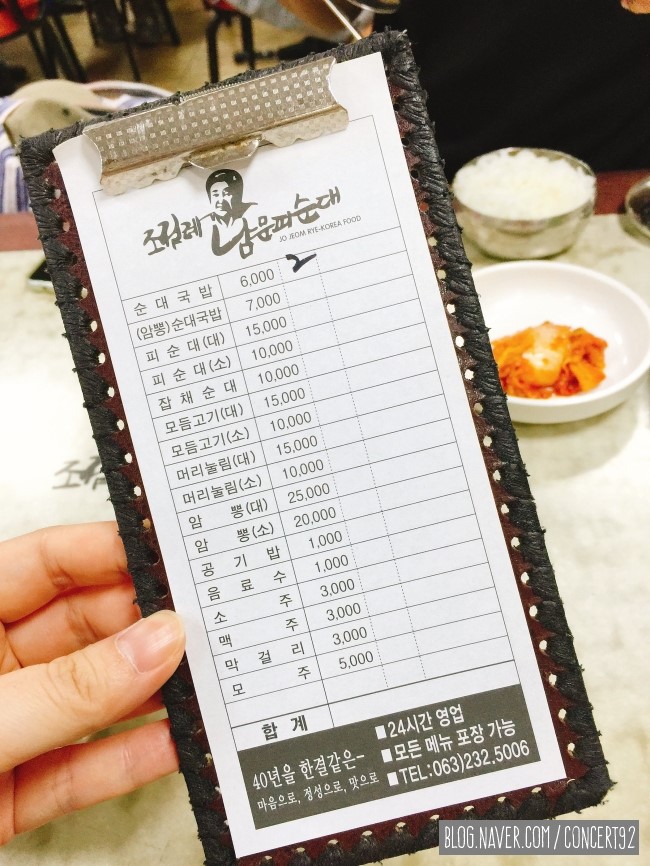 조점례
남문피순대
JO JEOM RYE-KOREA FOOD
순 대 국 밥 6,000 2
(암뽕)순대국밥 7,000
피 순 대 (대) 15,000
피 순 대 (소) 10,000
잡 채 순 대 10,000
모듬고기(대) 15,000
모듬고기(소) 10,000
머리눌림(대) 15,000
머리눌림(소) 10,000
암 뽕(대) 25,000
암 뽕(소) 20,000
공 기 밥 1,000
음 료 수 1,000
소 주 3,000
맥 주 3,000
막 걸 리 3,000
모 주 5,000
합 계
40년을 한결같은-
마음으로, 정성으로, 맛으로
■24시간 영업
■모든 메뉴 포장 가능
■TEL:063)232.5006
BLOG.NAVER.COM / CONCERT92